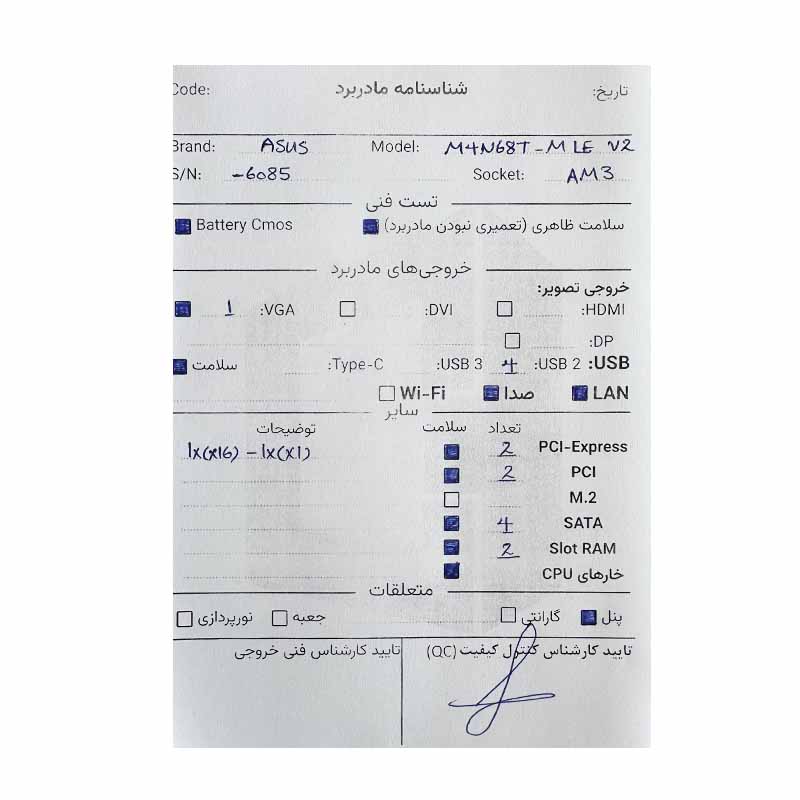 شناسنامه مادربرد
تاریخ:
Code:
Brand: ASUS Model: M4N68T-M LE V2
S/N: -6085 Socket: AM3
تست فنی
سلامت ظاهری (تعمیری نبودن مادربرد) Battery Cmos
خروجی‌های مادربرد
خروجی تصویر:
HDMI: DVI: VGA: 1
DP:
USB: USB 2: 4 USB 3: Type-C: سلامت
LAN صدا Wi-Fi
سایر
تعداد سلامت توضیحات
PCI-Express 2 1x(x16) - 1x(x1)
PCI 2
M.2
SATA 4
Slot RAM 2
خارهای CPU
متعلقات
پنل گارانتی جعبه نورپردازی
تایید کارشناس کنترل کیفیت (QC) تایید کارشناس فنی خروجی